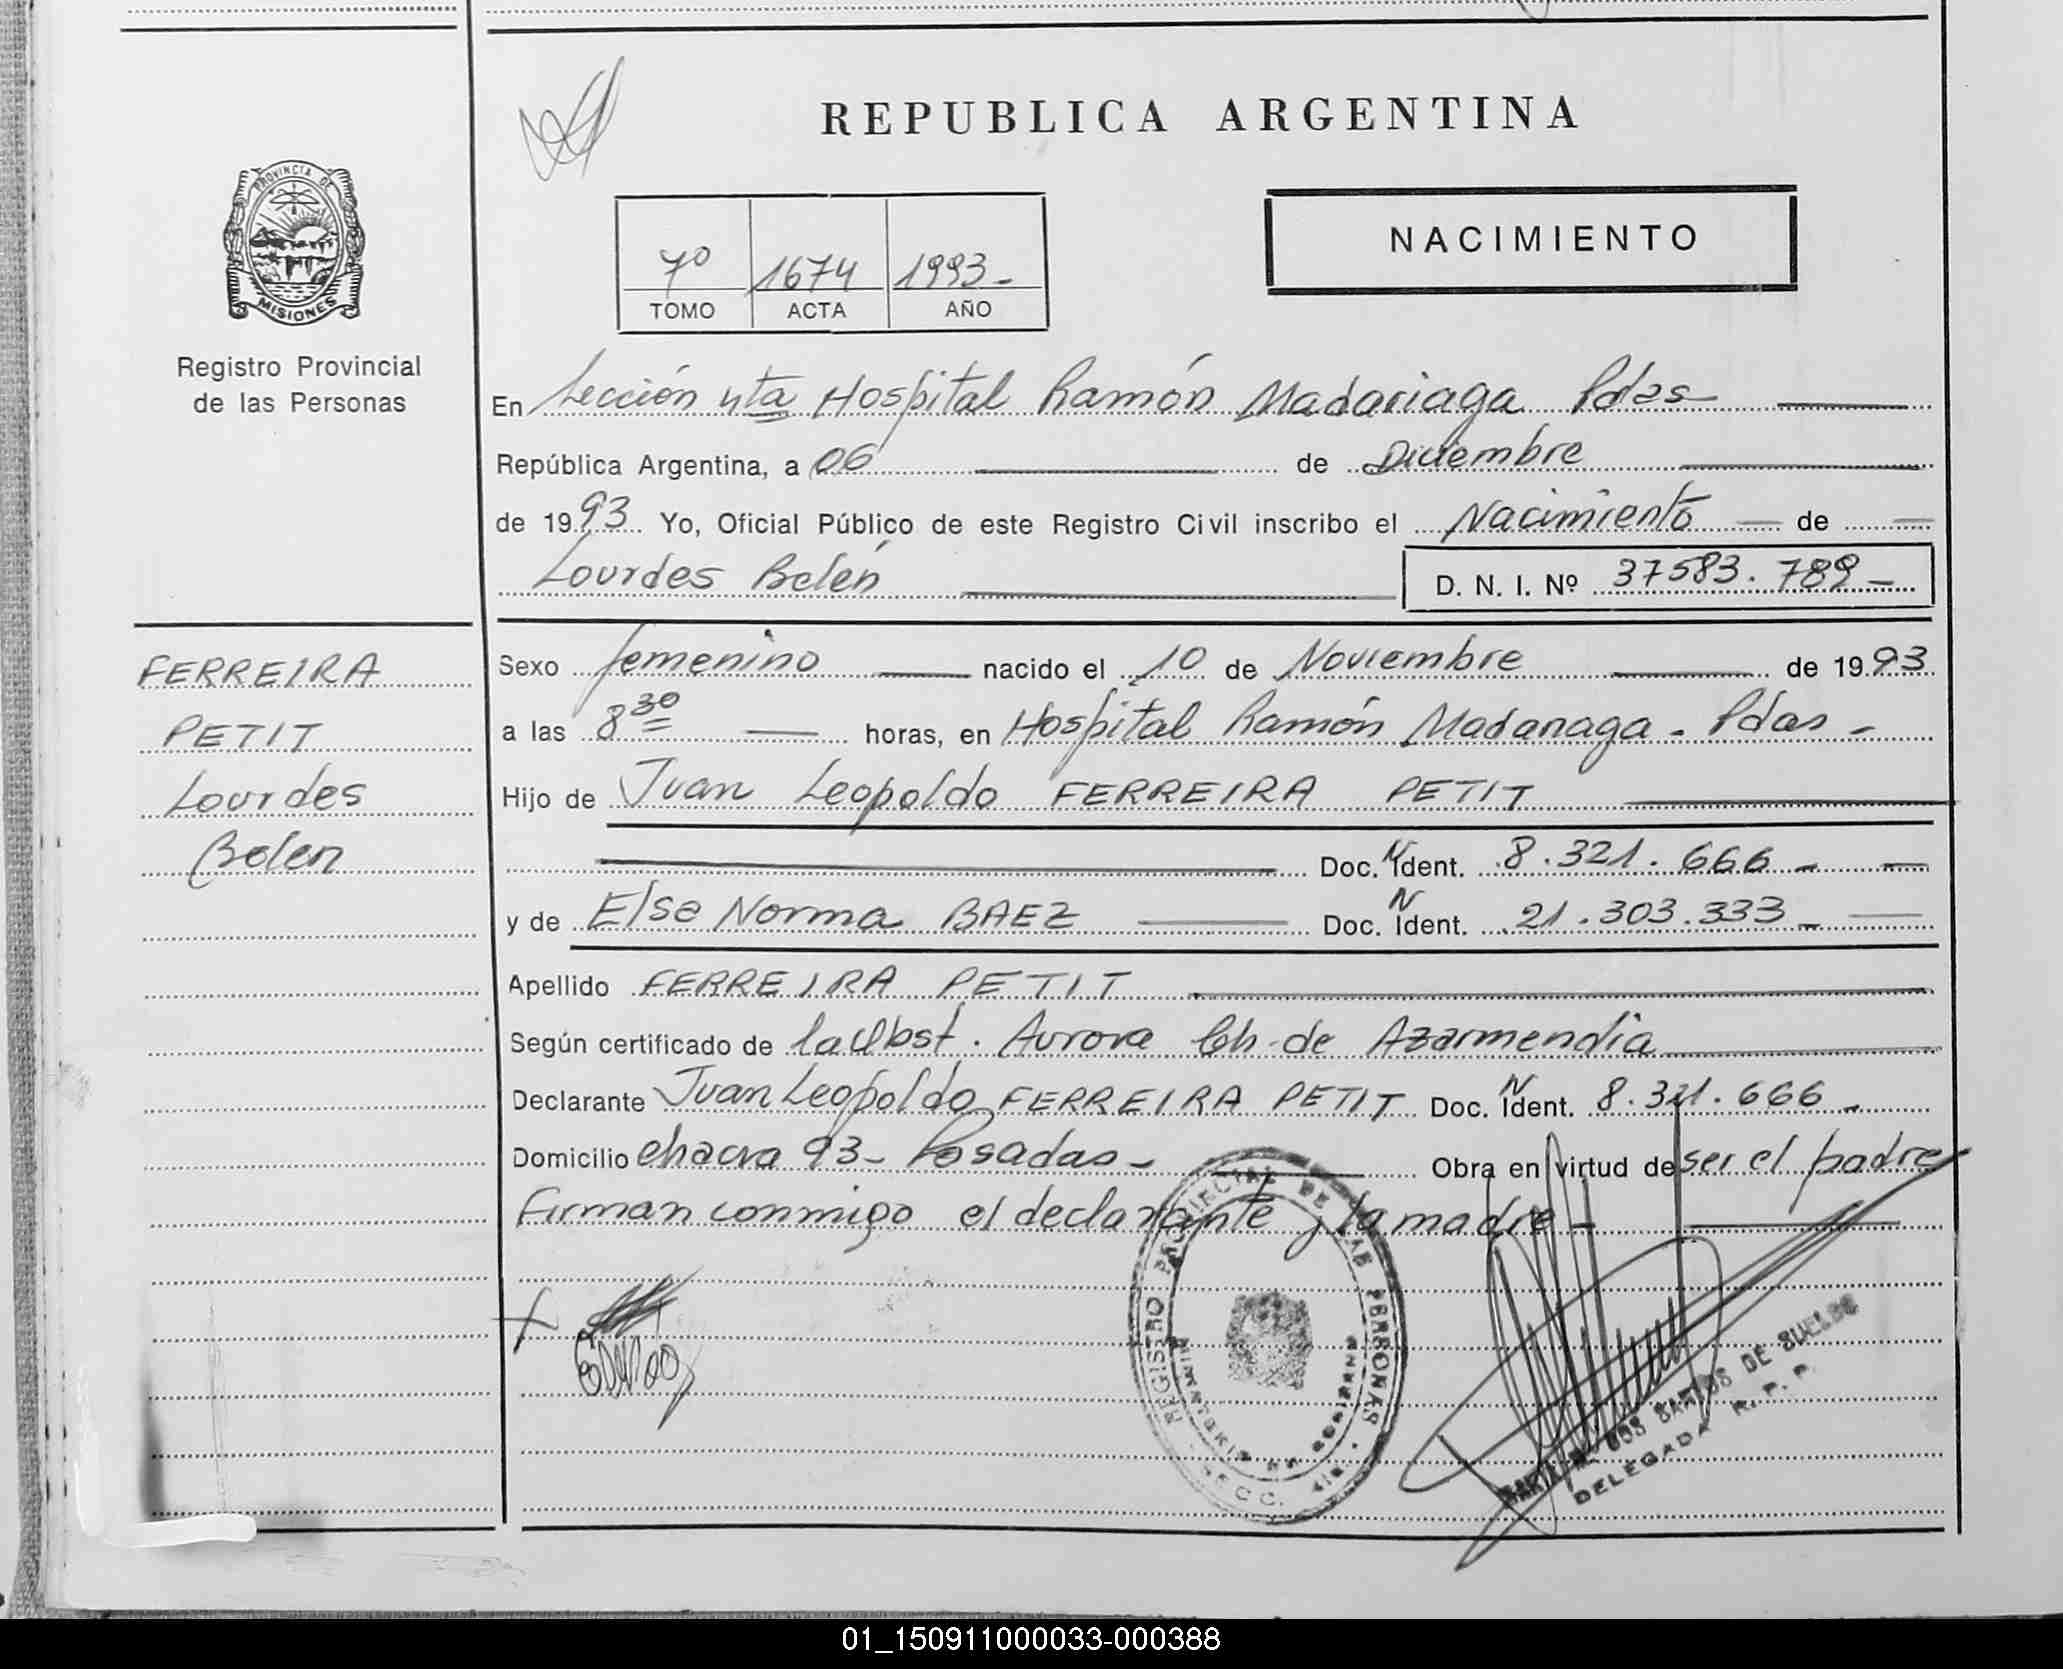 REPUBLICA ARGENTINA
PROVINCIA DE
MISIONES
Registro Provincial
de las Personas
NACIMIENTO
7º 1674 1993-
TOMO ACTA AÑO
En Sección 4ta Hospital Ramón Madariaga Pdas
República Argentina, a 06 de Diciembre
de 1993 Yo, Oficial Público de este Registro Civil inscribo el Nacimiento de
Lourdes Belén D. N. I. Nº 37583.789-
FERREIRA
PETIT
Lourdes
Belen
Sexo femenino nacido el 10 de Noviembre de 1993
a las 8 30 horas, en Hospital Ramón Madariaga - Pdas -
Hijo de Juan Leopoldo FERREIRA PETIT
Doc. N Ident. 8.321.666 -
y de Elsa Norma BAEZ Doc. N Ident. 21.303.333 -
Apellido FERREIRA PETIT
Según certificado de la Obst. Aurora Ch. de Azarmendia
Declarante Juan Leopoldo FERREIRA PETIT Doc. N Ident. 8.321.666 -
Domicilio chacra 93- Posadas- Obra en virtud de ser el padre
Firman conmigo el declarante y la madre -
REGISTRO PROVINCIAL DE LAS PERSONAS
DOS SANTOS DE
DELEGADA R. P. P.
01_150911000033-000388